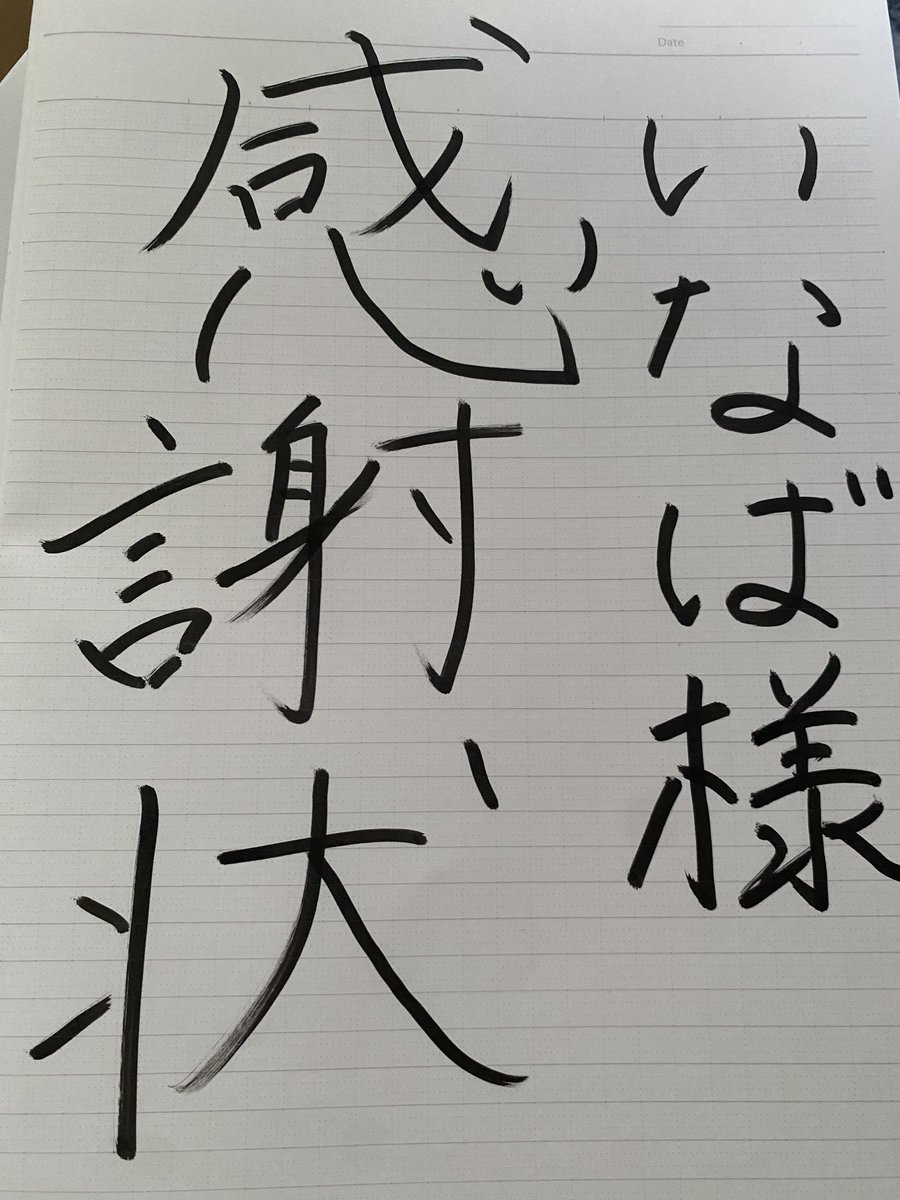 Date
いなば様
感謝状